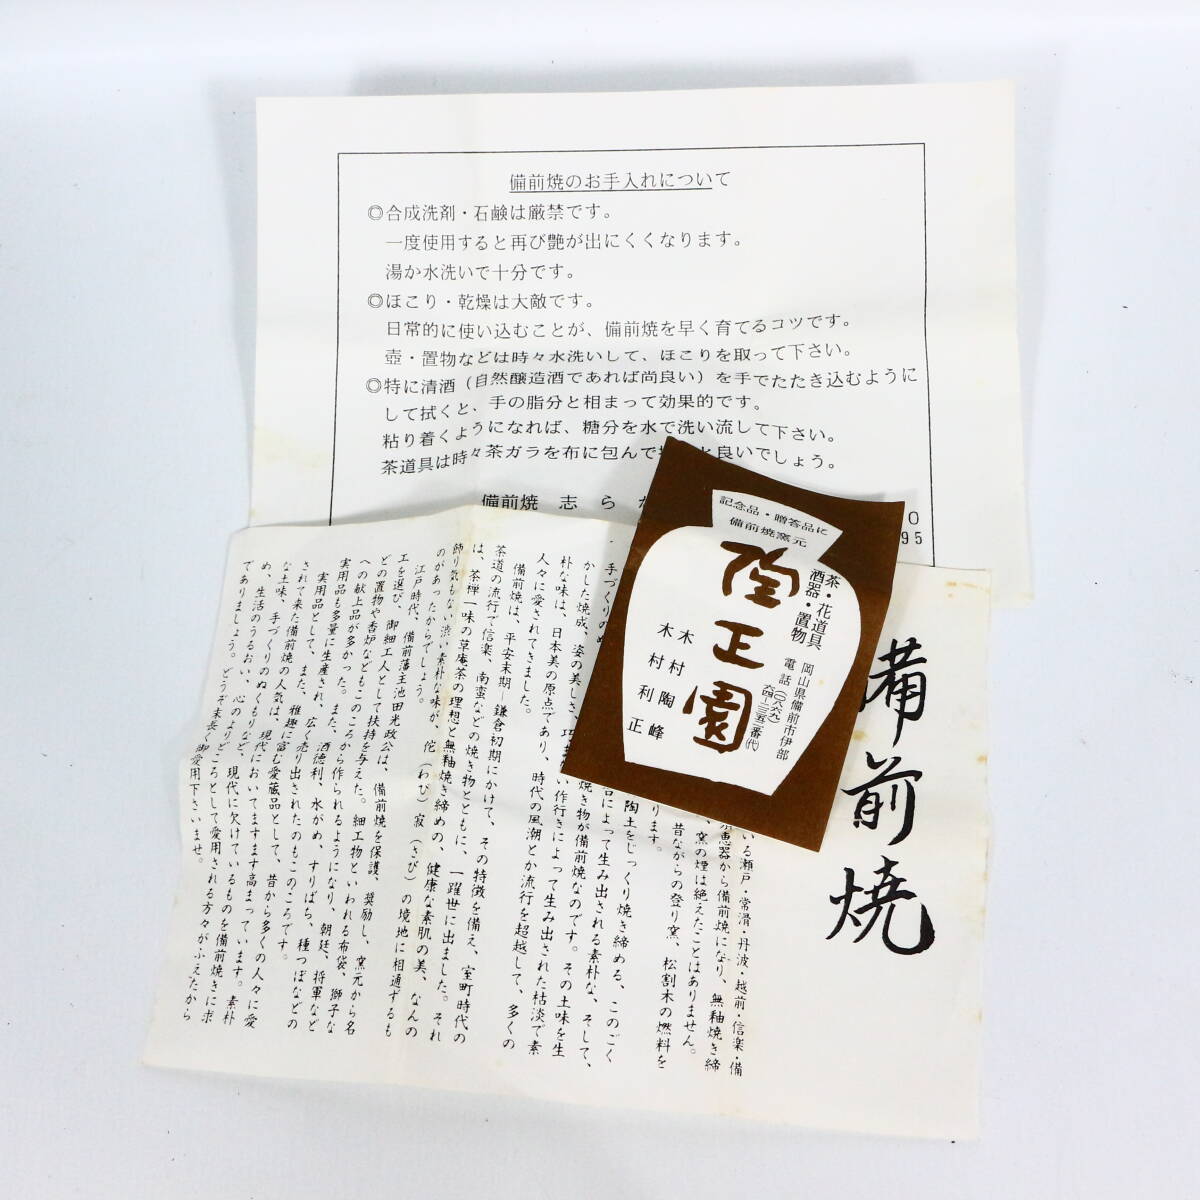 備前焼のお手入れについて
◎合成洗剤・石鹸は厳禁です。
一度使用すると再び艶が出にくくなります。
湯か水洗いで十分です。
◎ほこり・乾燥は大敵です。
日常的に使い込むことが、備前焼を早く育てるコツです。
壺・置物などは時々水洗いして、ほこりを取って下さい。
◎特に清酒（自然醸造酒であれば尚良い）を手でたたき込むように
して拭くと、手の脂分と相まって効果的です。
粘り着くようになれば、糖分を水で洗い流して下さい。
茶道具は時々茶ガラを布に包んで
と良いでしょう。
備前焼 志ら
0
95
記念品・贈答品に
備前焼窯元
陶正園
茶・花道具
酒器・置物
岡山県備前市伊部
電話（〇八六九）
六四-二三五二番(代)
木村陶峰
木村利正
備前焼
いる瀬戸・常滑・丹波・越前・信楽・備
須恵器から備前焼になり、無釉焼き締
窯の煙は絶えたことはありません。
昔ながらの登り窯、松割木の燃料を
ります。
手づくりのぬ
陶土をじっくり焼き締める、このごく
かした焼成、姿の美しさ、巧まない
合によって生み出される素朴な、そして、
朴な味は、日本美の原点であり、
焼き物が備前焼なのです。その土味を生
人々に愛されてきました。
作行きによって生み出された枯淡で素
時代の風潮とか流行を超越して、多くの
備前焼は、平安末期-鎌倉初期にかけて、その特徴を備え、室町時代の
茶道の流行で信楽、南蛮などの焼き物とともに、一躍世に出ました。それ
は、茶禅一味の草庵茶の理想と無釉焼き締めの、健康な素肌の美、なんの
飾り気もない渋い素朴な味が、侘（わび）寂（さび）の境地に相通ずるも
のがあったからでしょう。
江戸時代、備前藩主池田光政公は、備前焼を保護、奨励し、窯元から名
工を選び、御細工人として扶持を与えた。細工物といわれる布袋、獅子な
どの置物や香炉などもこのころから作られるようになり、朝廷、将軍など
への献上品が多かった。また、酒徳利、水がめ、すりばち、種つぼなどの
実用品も多量に生産され、広く売り出されたのもこのころです。
実用品として、また、雅趣に富む愛蔵品として、昔から多くの人々に愛
されて来た備前焼の人気は、現代においてますます高まっています。素朴
な土味、手づくりのぬくもりなど、現代に欠けているものを備前焼きに求
め、生活のうるおい、心のよりどころとして愛用される方々がふえたから
でありましょう。どうぞ末長く御愛用下さいませ。